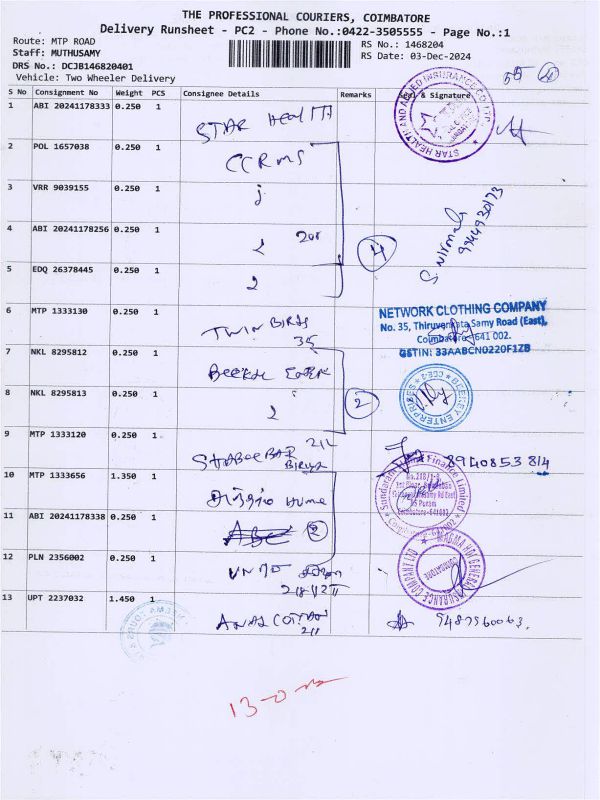 THE PROFESSIONAL COURIERS, COIMBATORE
Delivery Runsheet - PC2 - Phone No.:0422-3505555 - Page No.:1
Route: MTP ROAD
Staff: MUTHUSAMY
DRS No.: DCJB146820401
Vehicle: Two Wheeler Delivery
RS No.: 1468204
RS Date: 03-Dec-2024
S No Consignment No Weight PCS Consignee Details Remarks & Signature
1 ABI 20241178333 0.250 1 STAR HEALTH
STAR HEALTH AND ALLIED INSURANCE CO LTD
2 POL 1657038 0.250 1 CCRMS
3 VRR 9039155 0.250 1
4 ABI 20241178256 0.250 1
4
Nirmala
5 EDQ 26378445 0.250 1
6 MTP 1333130 0.250 1 TWIN BIRDS
35
NETWORK CLOTHING COMPANY
No. 35, Thiruvenkata Samy Road (East),
Coimbatore - 641 002.
GSTIN: 33AABCN0220F1ZB
7 NKL 8295812 0.250 1
8 NKL 8295813 0.250 1
2
ENTERPRISES
9 MTP 1333120 0.250 1
211
8940853814
10 MTP 1333656 1.350 1
Sundaram Home Finance Limited
11 ABI 20241178338 0.250 1
2
12 PLN 2356002 0.250 1
MAGMA HDI GENERAL INSURANCE COMPANY LTD
13 UPT 2237032 1.450 1
211
13-0